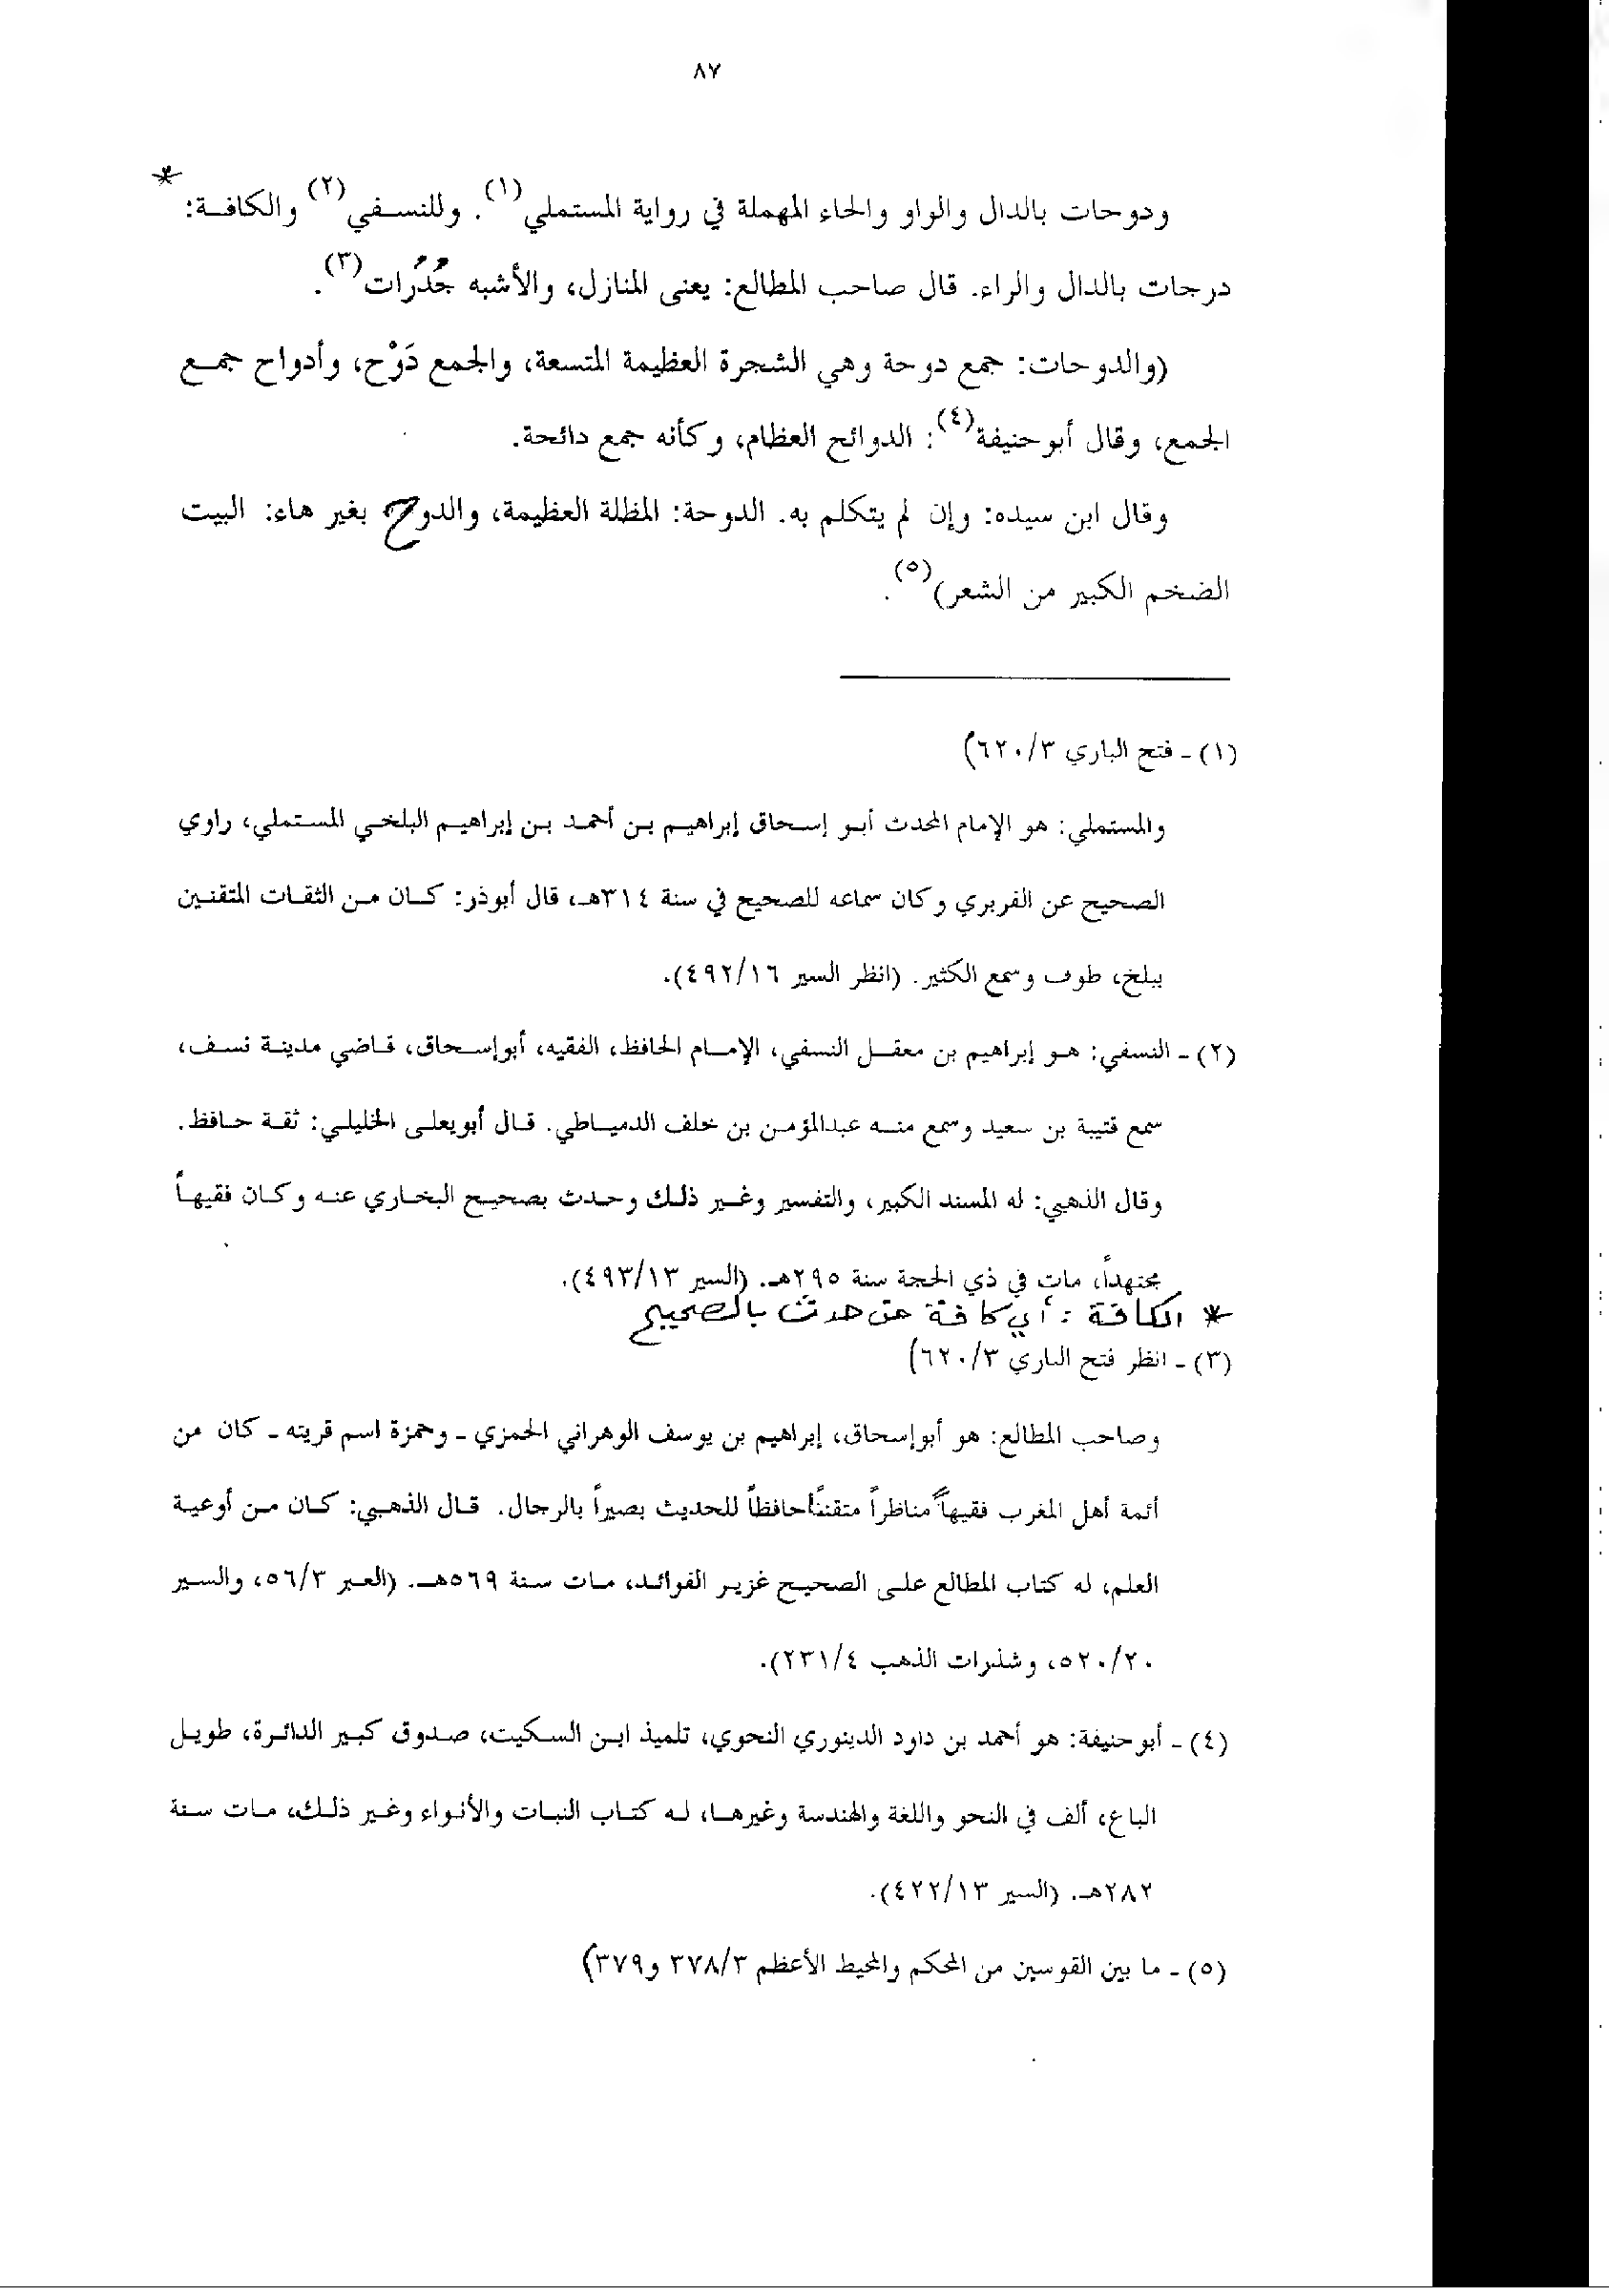 ٨٧
ودوحات بالدال والواو والحاء المهملة في رواية المستملي(١). وللنسفي(٢) والكافة: *
درجات بالدال والراء. قال صاحب المطالع: يعنى المنازل، والأشبه جُدُرات(٣).
(والدوحات: جمع دوحة وهي الشجرة العظيمة المتسعة، والجمع دَوْح، وأدواح جمع
الجمع، وقال أبوحنيفة(٤): الدوائح العظام، وكأنه جمع دائحة.
وقال ابن سيده: وإن لم يتكلم به. الدوحة: المظلة العظيمة، والدوح بغير هاء: البيت
الضخم الكبير من الشعر)(٥).
(١) - فتح الباري ٦٢٠/٣)
والمستملي: هو الإمام المحدث أبو إسحاق إبراهيم بن أحمد بن إبراهيم البلخي المستملي، راوي
الصحيح عن الفربري وكان سماعه للصحيح في سنة ٣١٤هـ، قال أبوذر: كان من الثقات المتقنين
ببلخ، طوف وسمع الكثير. (انظر السير ٤٩٢/١٦).
(٢) - النسفي: هو إبراهيم بن معقل النسفي، الإمام الحافظ، الفقيه، أبوإسحاق، قاضي مدينة نسف،
سمع قتيبة بن سعيد وسمع منه عبدالمؤمن بن خلف الدمياطي. قال أبويعلى الخليلي: ثقة حافظ.
وقال الذهبي: له المسند الكبير، والتفسير وغير ذلك وحدث بصحيح البخاري عنه وكان فقيهاً
مجتهداً، مات في ذي الحجة سنة ٢٩٥هـ. (السير ٤٩٣/١٣).
* الكافة : أي كافة من حدث بالصحيح
(٣) - انظر فتح الباري ٦٢٠/٣)
وصاحب المطالع: هو أبوإسحاق، إبراهيم بن يوسف الوهراني الحمزي - وحمزة اسم قريته - كان من
أئمة أهل المغرب فقيهاً مناظراً متقناً حافظاً للحديث بصيراً بالرجال. قال الذهبي: كان من أوعية
العلم، له كتاب المطالع على الصحيح غزير الفوائد، مات سنة ٥٦٩هـ. (العبر ٥٦/٣، والسير
٥٢٠/٢٠، وشذرات الذهب ٢٣١/٤).
(٤) - أبوحنيفة: هو أحمد بن داود الدينوري النحوي، تلميذ ابن السكيت، صدوق كبير الدائرة، طويل
الباع، ألف في النحو واللغة والهندسة وغيرها، له كتاب النبات والأنواء وغير ذلك، مات سنة
٢٨٢هـ. (السير ٤٢٢/١٣).
(٥) - ما بين القوسين من المحكم والمحيط الأعظم ٣٧٨/٣ و٣٧٩)